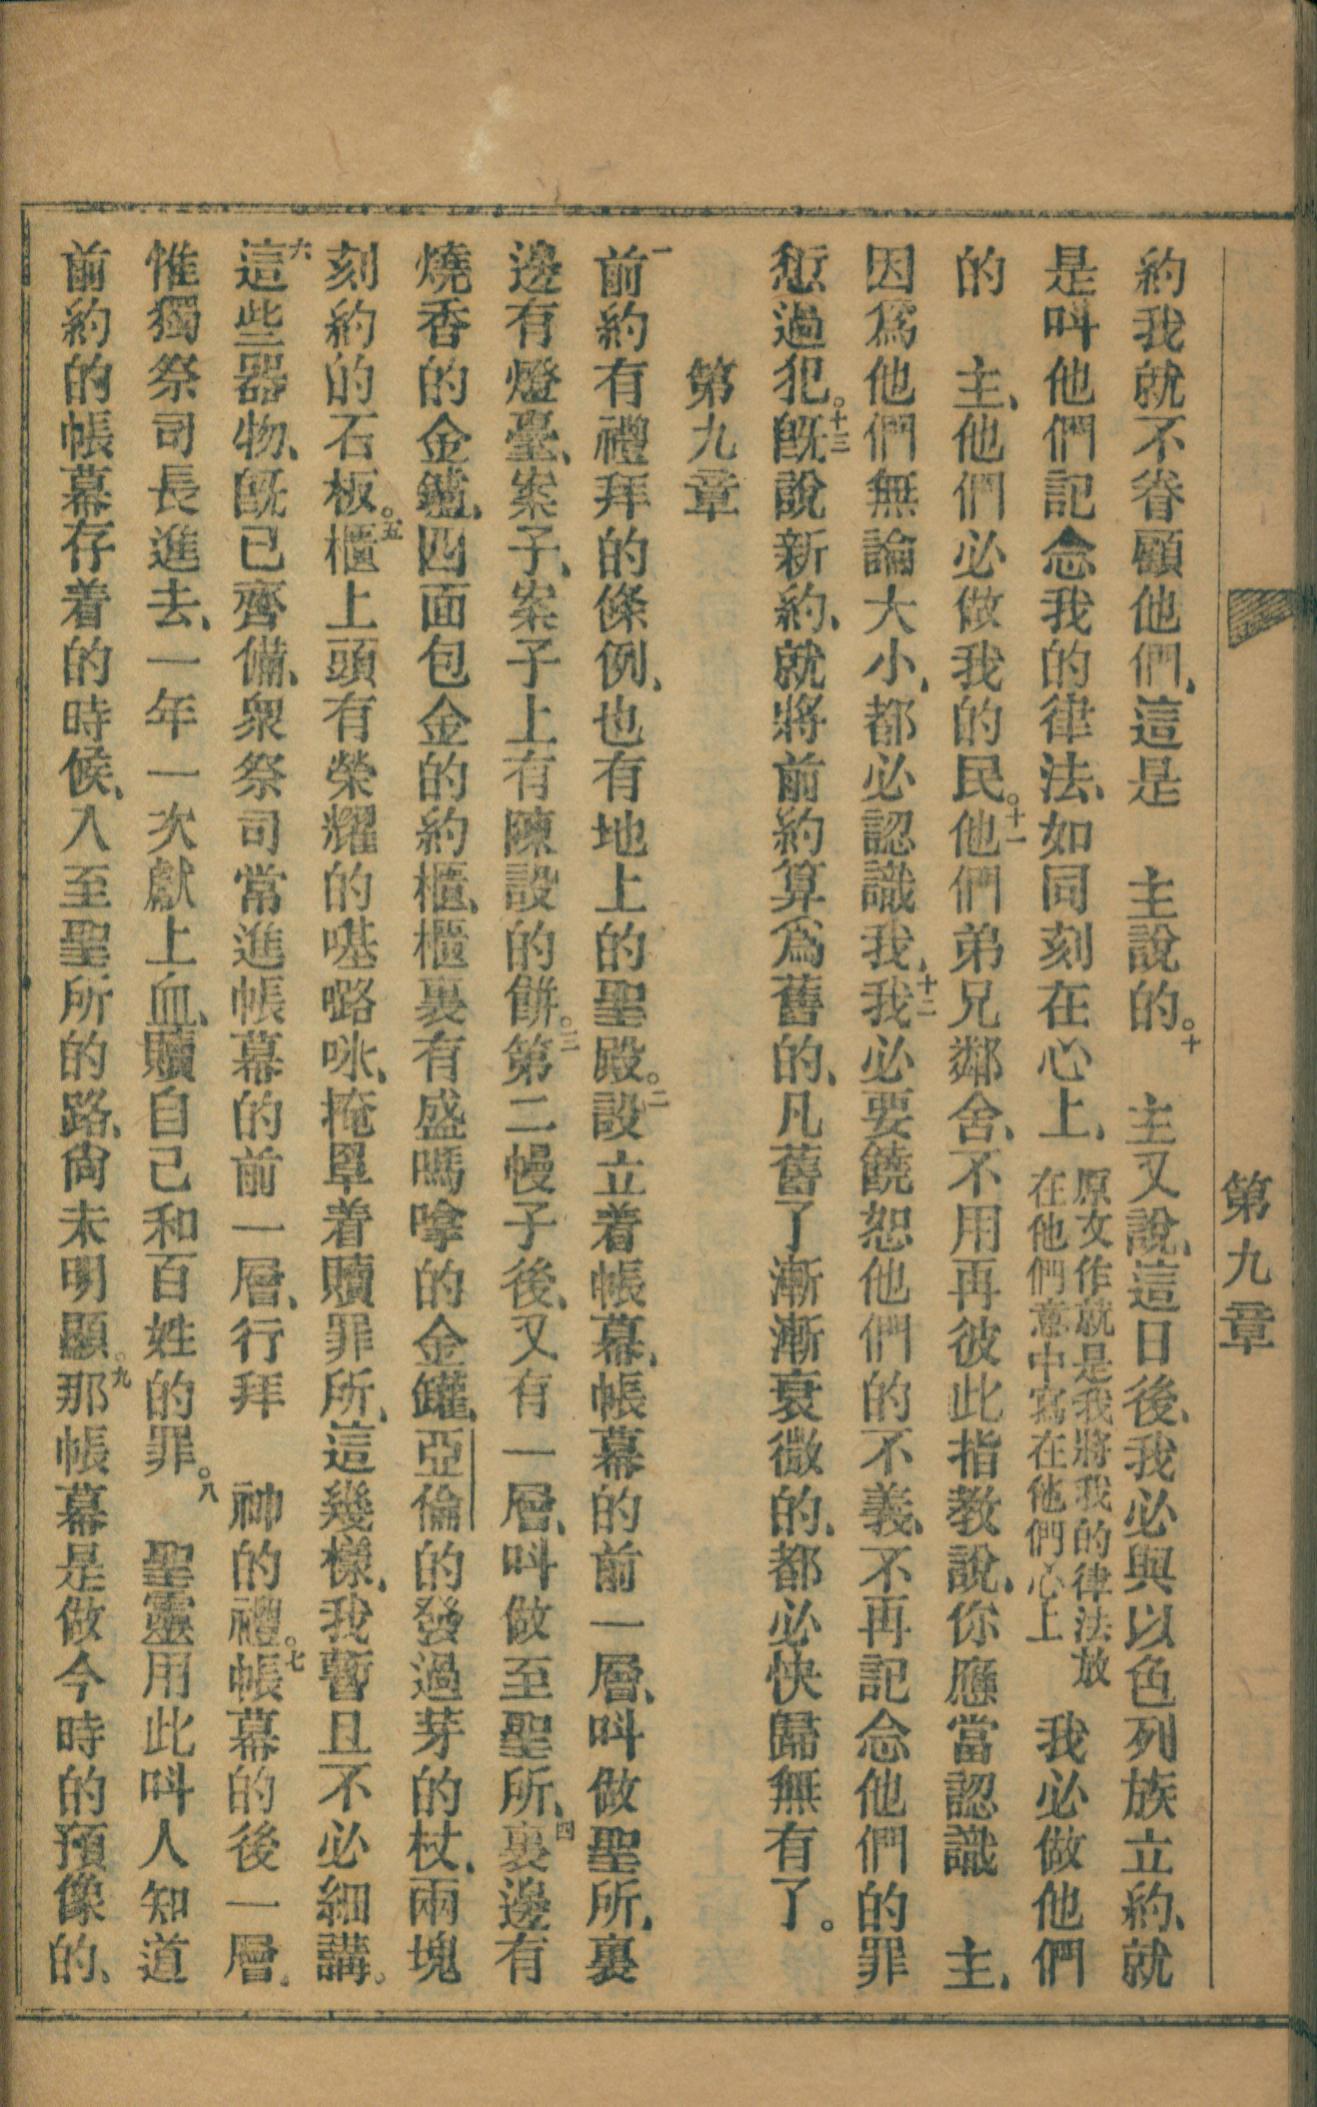 第九章
約我就不眷顧他們、這是　主說的。十　主又說、這日後、我必與以色列族立約、就
是叫他們記念我的律法、如同刻在心上、原文作就是我將我的律法放在他們意中寫在他們心上　我必做他們
的　主、他們必做我的民。十一他們弟兄鄰舍、不用再彼此指教說、你應當認識　主、
因爲他們無論大小、都必認識我、十二我必要饒恕他們的不義、不再記念他們的罪
愆過犯。十三旣說新約、就將前約算爲舊的、凡舊了漸漸衰微的、都必快歸無有了。
第九章
一前約有禮拜的條例、也有地上的聖殿。二設立着帳幕、帳幕的前一層、叫做聖所、裏
邊有燈臺、案子、案子上有陳設的餅。三第二幔子後、又有一層、叫做至聖所、四裏邊有
燒香的金鑪、四面包金的約櫃、櫃裏有盛嗎嗱的金罐、亞倫的發過芽的杖、兩塊
刻約的石板。五櫃上頭有榮耀的𠼻嚕咏、掩罩着贖罪所、這幾樣、我暫且不必細講。
六這些器物、旣已齊備、衆祭司常進帳幕的前一層、行拜　神的禮。七帳幕的後一層、
惟獨祭司長進去、一年一次獻上血、贖自己和百姓的罪。八　聖靈用此叫人知道
前約的帳幕存着的時候、入至聖所的路、尙未明顯。九那帳幕是做今時的預像的、